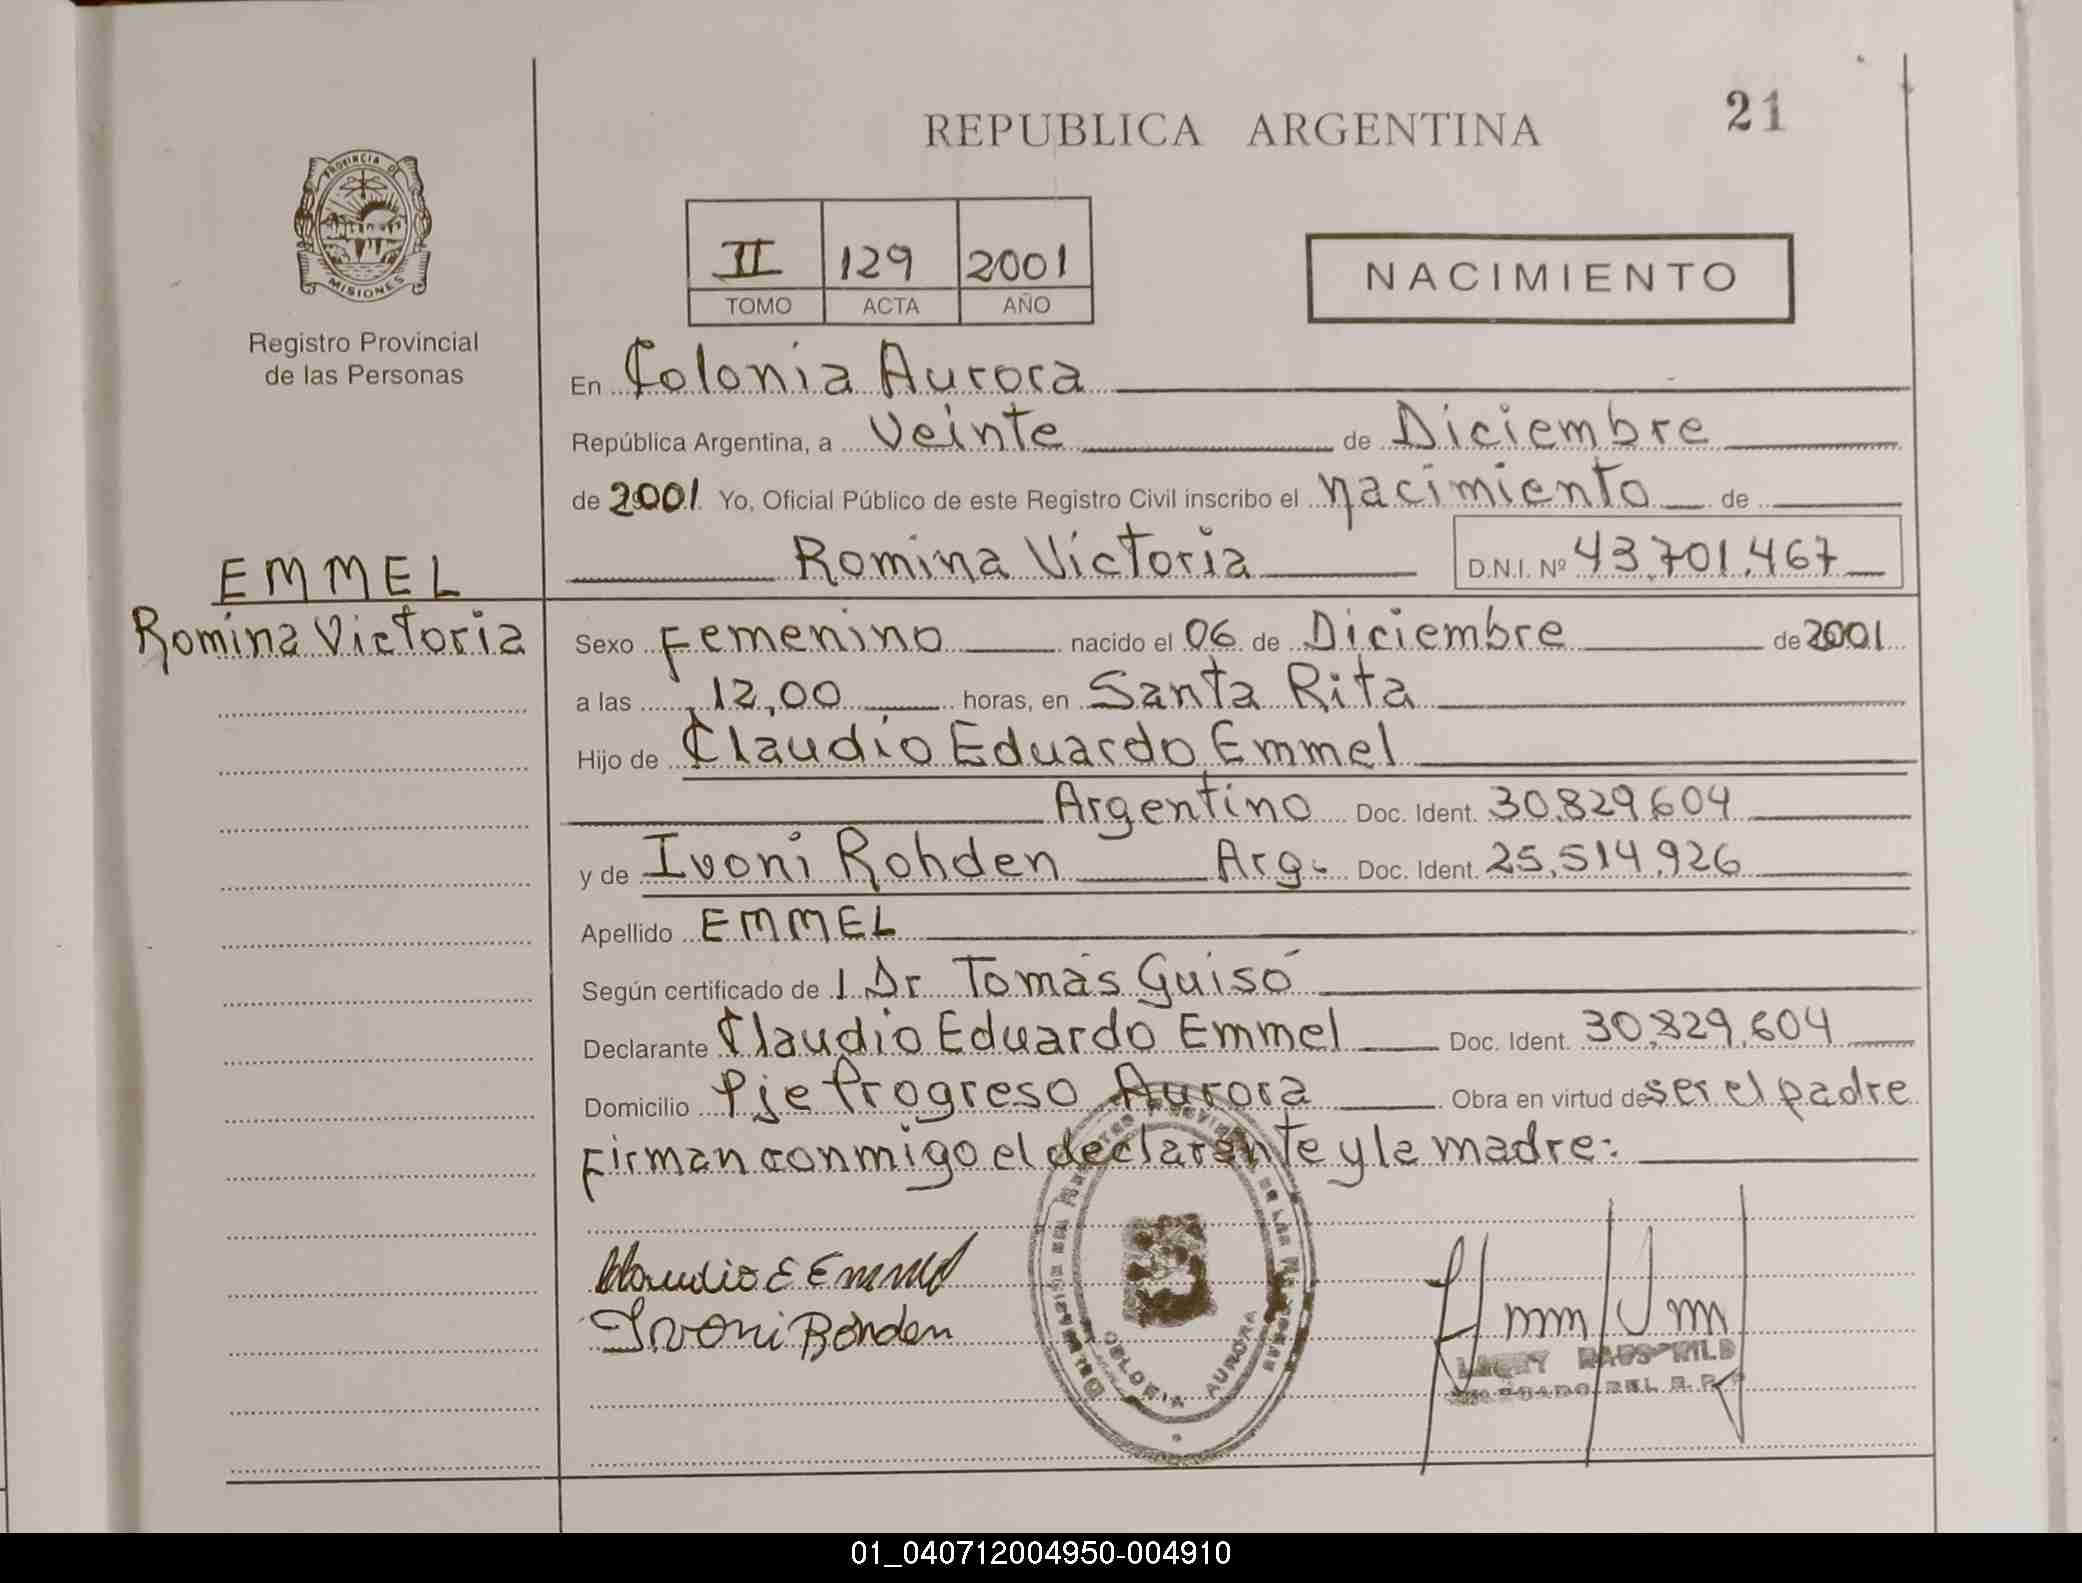 REPUBLICA ARGENTINA
21
PROVINCIA DE
MISIONES
Registro Provincial
de las Personas
II 129 2001
TOMO ACTA AÑO
NACIMIENTO
En Colonia Aurora
República Argentina, a Veinte de Diciembre
de 2001 Yo, Oficial Público de este Registro Civil inscribo el nacimiento de
Romina Victoria D.N.I. Nº 43.701.467
EMMEL
Romina Victoria
Sexo Femenino nacido el 06 de Diciembre de 2001
a las 12,00 horas, en Santa Rita
Hijo de Claudio Eduardo Emmel
Argentino Doc. Ident. 30.829.604
y de Ivoni Rohden Arg. Doc. Ident. 25.514.926
Apellido EMMEL
Según certificado de l Dr Tomás Guisó
Declarante Claudio Eduardo Emmel Doc. Ident. 30.829.604
Domicilio Pje Progreso Aurora Obra en virtud de ser el padre
Firman conmigo el declarante y la madre:
Claudio E Emmel
Ivoni Rohden
COLONIA AURORA
01_040712004950-004910